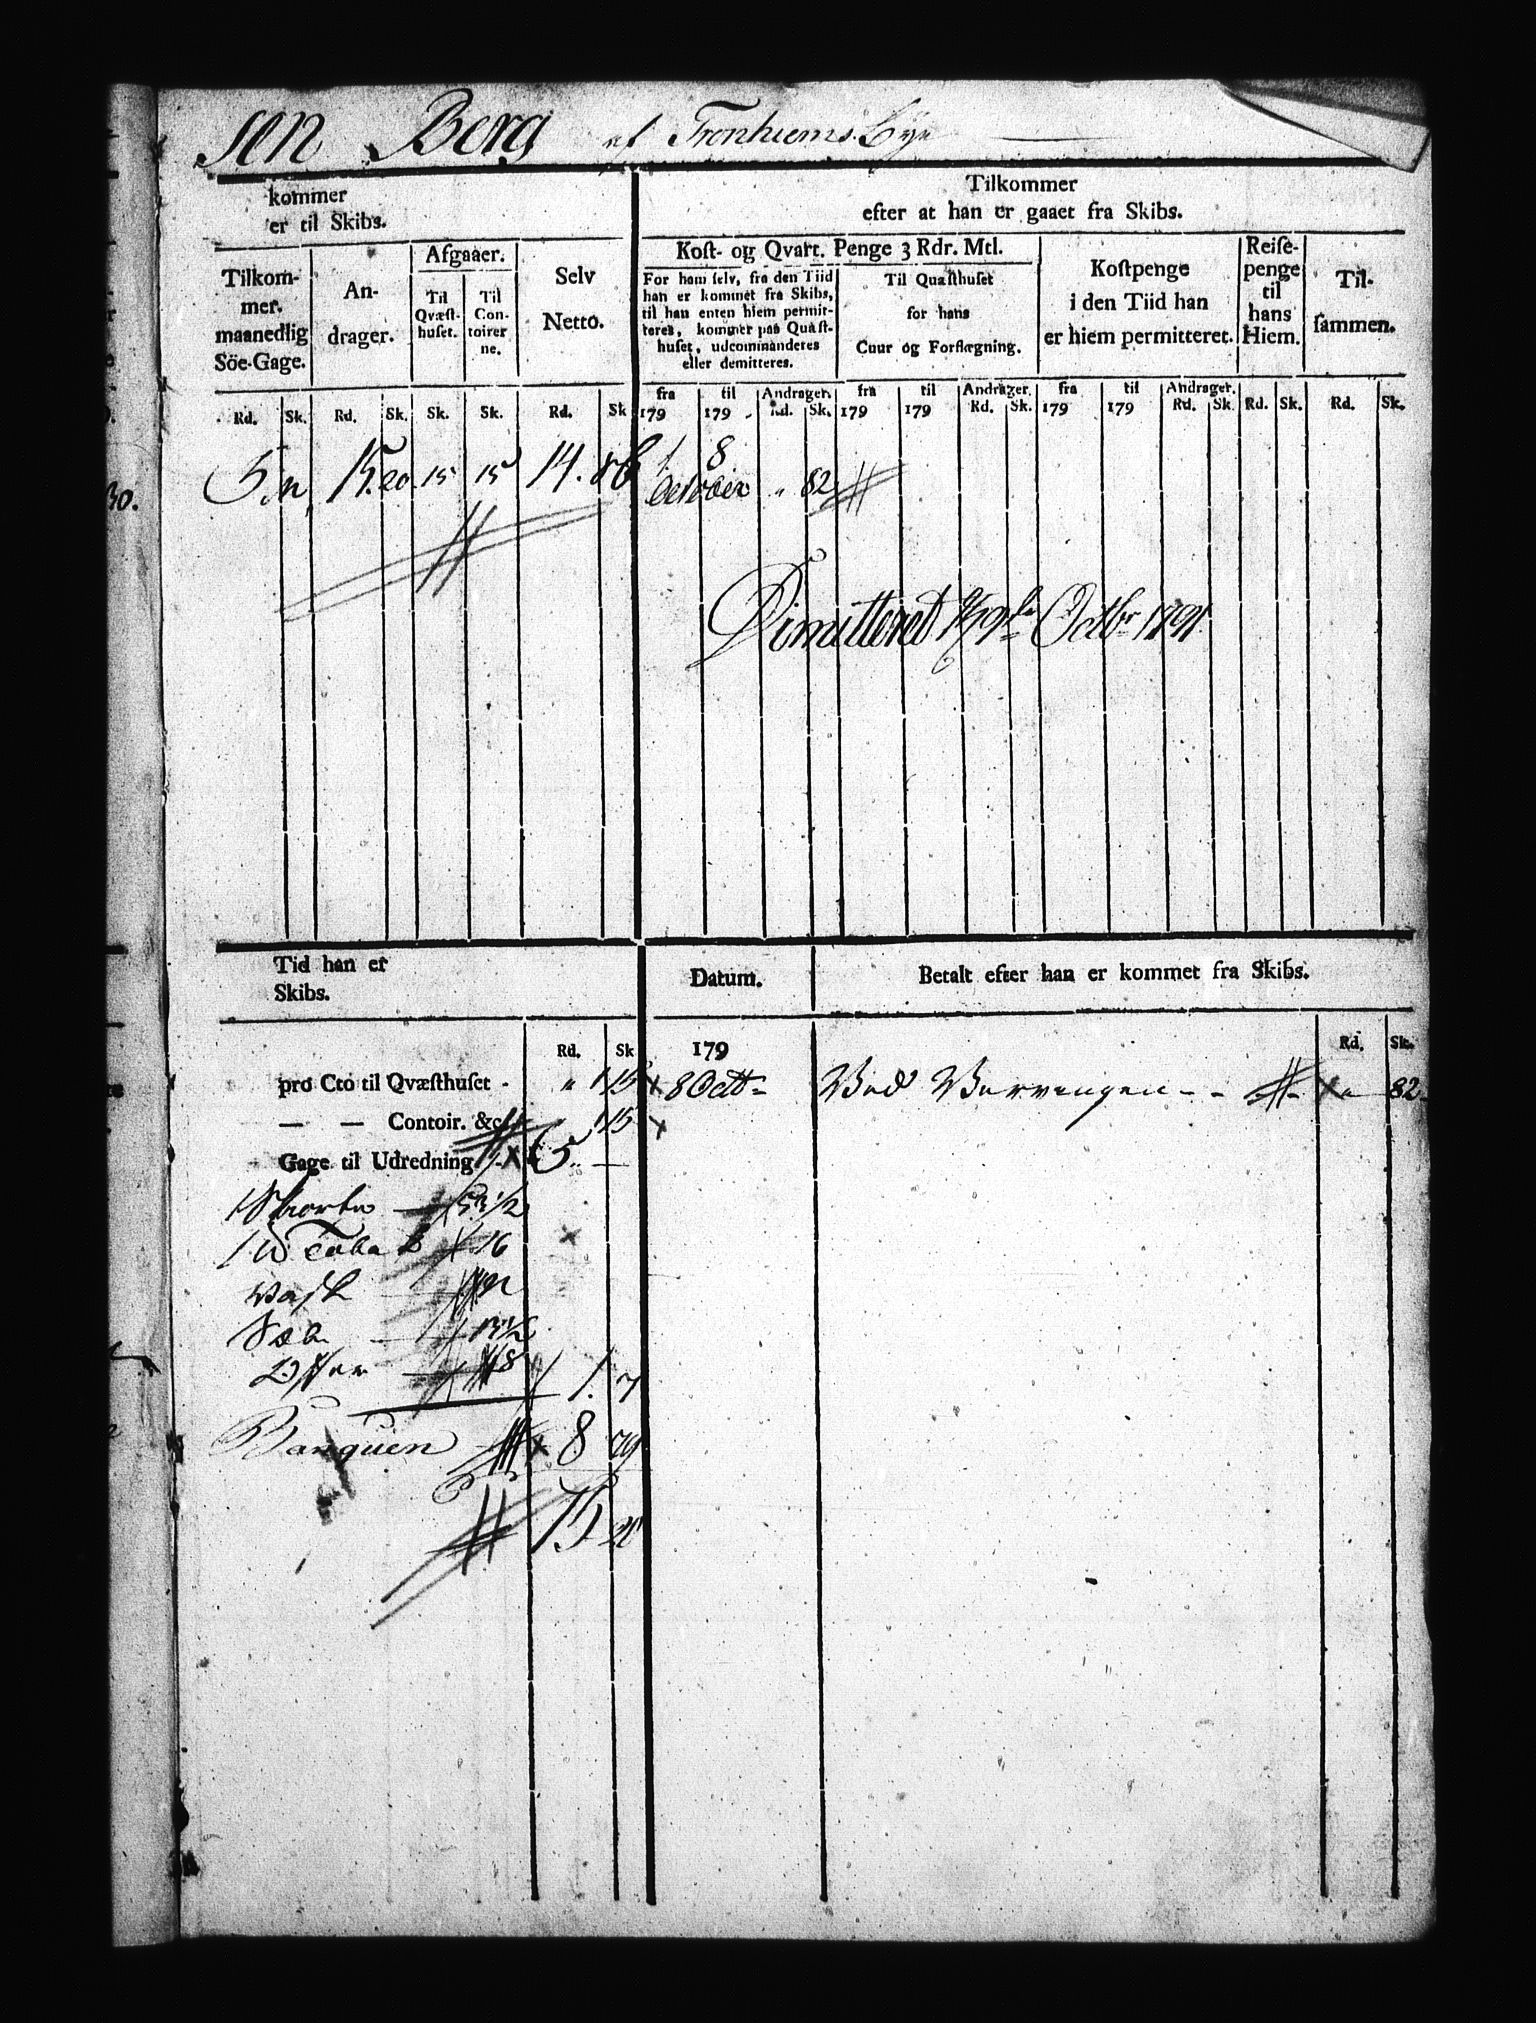 sen Berg af Tronhiems Bye
kommer
er til Skibs.
Tilkommer
efter at han er gaaet fra Skibs.
Tilkom-
mer.
maanedlig
Söe-Gage.
An-
drager.
Afgaaer.
Til
Qvæst-
huset.
Til
Con-
toirer
ne.
Selv
Netto.
Kost- og Qvart. Penge 3 Rdr. Mtl.
For ham selv, fra den Tiid
han er kommet fra Skibs,
til han enten hiem permit-
teres, kommer paa Quæst-
huset, udcommanderes
eller demitteres.
Til Quæsthuset
for hans
Cuur og Forflægning.
Kostpenge
i den Tiid han
er hiem permitteret.
Reise-
penge
til
hans
Hiem.
Til-
sammen.
fra til Andrager. fra til Andrager. fra til Andrager.
Rd. Sk. Rd. Sk. Sk. Sk. Rd. Sk 179 179 Rd. Sk. 179 179 Rd. Sk. 179 179 Rd. Sk. Rd. Sk. Rd. Sk.
1 8
5 15. 20 15 15 14. 86 October " 82
Dimitteret 8de Octbr 1791
Tid han er
Skibs.
Datum.
Betalt efter han er kommet fra Skibs.
Rd. Sk 179 Rd. Sk.
pro Cto til Qvæsthuset - " 15 8 Octb Ved Vervengen - - " 82
— — Contoir. &c. 15
Gage til Udredning - 5 " —
1 Skiorte — 53 1/2
1 lb Tobak 16
Vask
Sæbe — 13 1/2
Offer — 8
1. 7
Banquen 8 79
15 20
30.